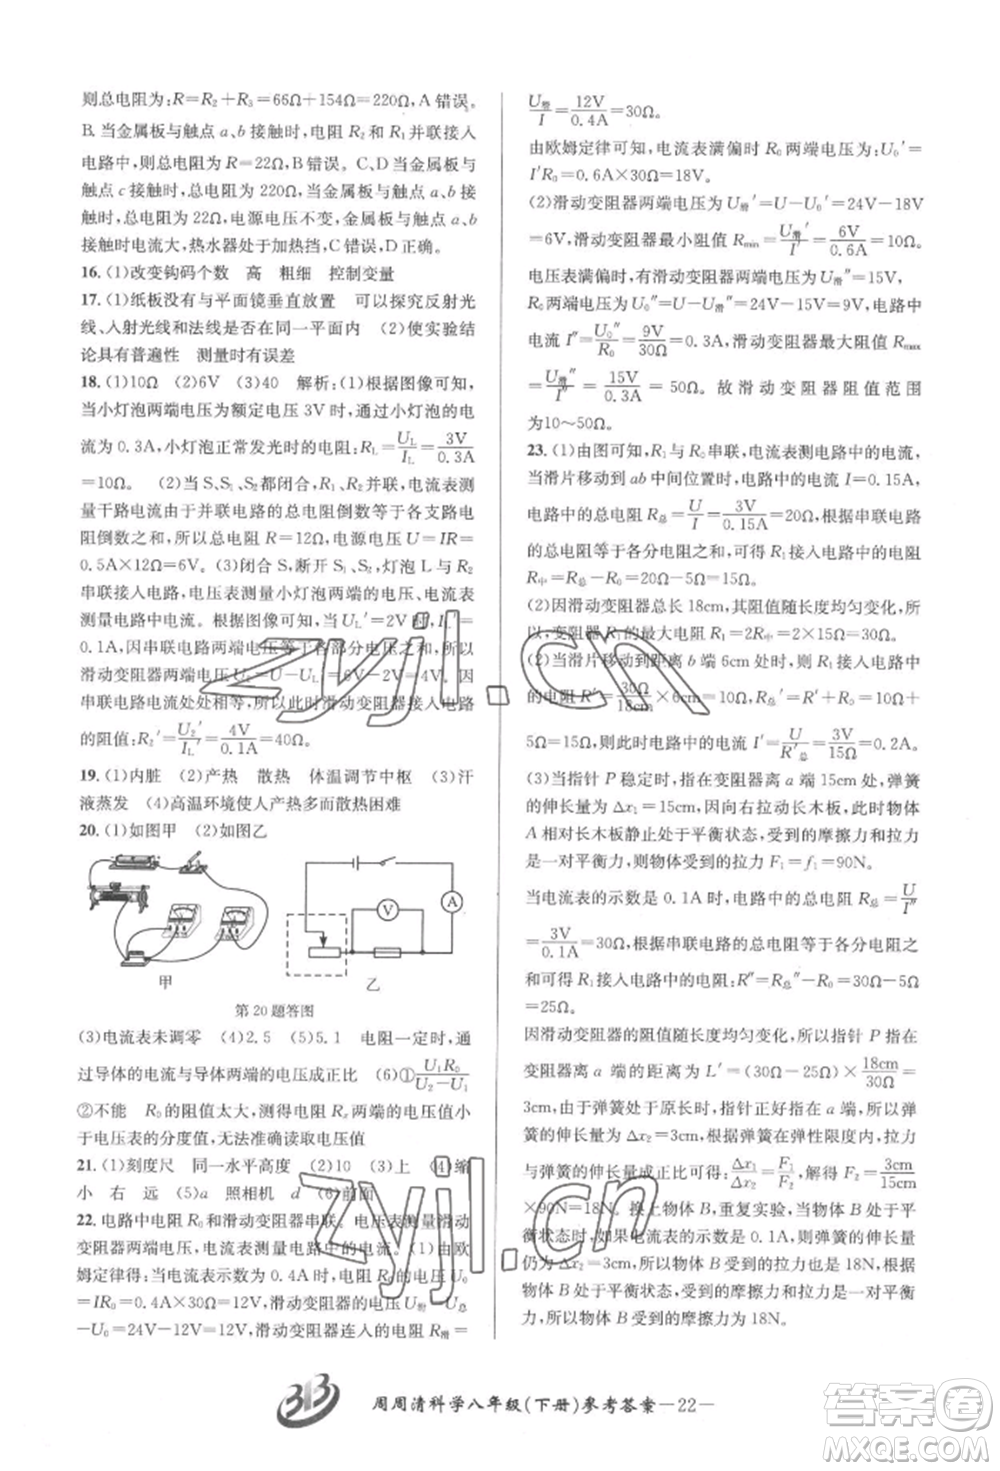 则总电阻为:R=R₂+R₃=66Ω+154Ω=220Ω,A错误。
B.当金属板与触点a、b接触时,电阻R₂和R₁并联接入
电路中,则总电阻为R=22Ω,B错误。C、D当金属板与
触点c接触时,总电阻为220Ω,当金属板与触点a、b接
触时,总电阻为22Ω,电源电压不变,金属板与触点a、b
接触时电流大,热水器处于加热挡,C错误,D正确。
16.(1)改变钩码个数 高 粗细 控制变量
17.(1)纸板没有与平面镜垂直放置 可以探究反射光
线、入射光线和法线是否在同一平面内 (2)使实验结
论具有普遍性 测量时有误差
18.(1)10Ω (2)6V (3)40 解析:(1)根据图像可知,
当小灯泡两端电压为额定电压3V时,通过小灯泡的电
流为0.3A,小灯泡正常发光时的电阻:R_L=U_L/I_L=3V/0.3A
=10Ω。 (2)当S、S₁、S₂都闭合,电流表测
量干路电流由于并联电路的总电阻倒数等于各支路电
阻倒数之和,所以电源电压U=IR=
0.5A×12Ω=6V。(3)闭合S,断开S₁、S₂,灯泡L与R₂
串联接入电路,电压表测量小灯泡两端的电压,电流表
测量电路中电流。由图像可知,当U_L′=2V时,I_L′=
0.1A,因串联电路两端电压等于各部分电压之和,所以
滑动变阻器两端电压U₂′=U-U_L′=6V-2V=4V,因
串联电路电流处处相等,所以此时滑动变阻器接入电路
的阻值:R₂′=U₂′/I_L′=4V/0.1A=40Ω。
19.(1)内脏 (2)产热 散热 体温调节中枢 (3)汗
液蒸发 (4)高温环境使人产热多而散热困难
20.(1)如图甲 (2)如图乙
V
A
甲
乙
第20题答图
(3)电流表未调零 (4)2.5 (5)5.1 电阻一定时,通
过导体的电流与导体两端的电压成正比 (6)①U₁R₀/(U₂-U₁)
②不能 R₀的阻值太大,测得电阻Rₓ两端的电压小
于电压表的分度值,无法准确读取电压值
21.(1)刻度尺 同一水平高度 (2)10 (3)上 (4)缩
小 右 远 (5)a 照相机 d (6)前面
22.电路中电阻R₀和滑动变阻器串联。电压表测量滑动
变阻器两端电压,电流表测量电路中的电流。(1)由欧
姆定律得:当电流表示数为0.4A时,R₀两端的电压U₀
=IR₀=0.4A×30Ω=12V,滑动变阻器的电压U滑=U
-U₀=24V-12V=12V,滑动变阻器连入的电阻R滑=
U滑/I=12V/0.4A=30Ω。
由欧姆定律可知,电流表满偏时R₀两端电压为:U₀′=
I′R₀=0.6A×30Ω=18V。
(2)滑动变阻器两端电压为U滑′=U-U₀′=24V-18V
=6V,滑动变阻器最小阻值Rmin=U滑′/I′=6V/0.6A=10Ω。
电压表满偏时,有滑动变阻器两端电压为U滑″=15V,
R₀两端电压为U₀″=U-U滑″=24V-15V=9V,电路中
电流I″=U₀″/R₀=9V/30Ω=0.3A,滑动变阻器最大阻值Rmax
=U滑″/I″=15V/0.3A=50Ω。故滑动变阻器阻值范围
为10~50Ω。
23.(1)由图可知,R₁与R₀串联,电流表测电路中的电流,
当滑片移动到ab中间位置时,电路中的电流I=0.15A,
电路中的总电阻R总=U/I=3V/0.15A=20Ω,根据串联电路
的总电阻等于各分电阻之和,可知R₁接入电路中的电阻
R中=R总-R₀=20Ω-5Ω=15Ω。
(2)因滑动变阻器总长18cm,其阻值随长度均匀变化,所
以,变阻器R₁的最大电阻R₁=2R中=2×15Ω=30Ω。
(2)当滑片移动到距离b端6cm处时,则R₁接入电路中
的电阻R′=30Ω/18cm×6cm=10Ω,又因为R总′=R′+R₀=10Ω
+5Ω=15Ω,所以此时电路中的电流I′=U/R总′=3V/15Ω=0.2A。
(3)当指针P稳定时,在变阻器a端15cm处,此时弹簧
的伸长量为Δx₁=15cm。因向右拉动长木板,此时物体
A相对长木板静止处于平衡状态,受到的摩擦力和拉力
是一对平衡力,则物体受到的拉力F₁=f₁=90N。
当电流表的示数是0.1A时,电路中的总电阻R总=U/I″
=3V/0.1A=30Ω,根据串联电路的总电阻等于各分电阻之
和可得R₁接入电路中的电阻:R″=R总″-R₀=30Ω-5Ω
=25Ω。
因滑动变阻器的阻值随长度均匀变化,所以指针P指在
变阻器a端的距离为L′=(30Ω-25Ω)×18cm/30Ω=
3cm,由于弹簧处于原长时,指针正好指在a端,所以弹簧
伸长量为Δx₂=3cm,根据弹簧在弹性限度内,受到的力
与弹簧的伸长量成正比得:Δx₁/Δx₂=F₁/F₂,解得F₂=3cm/15cm
×90N=18N。换上物体B,重复实验,当物体B处于平
衡状态时,如果电流表的示数是0.1A,弹簧的伸长量
仍为Δx₂=3cm,则此时物体B受到的拉力为18N,因
物体B处于平衡状态,受到的摩擦力和拉力是一对平衡
力,所以物体B受到的摩擦力为18N。
zyjl.cn
zyjl.cn
周周清科学八年级(下册)参考答案—22—
答案圈
MXQE.COM